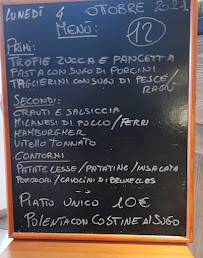 LUNEDÌ 4 OTTOBRE 2021
MENÙ: 12
PRIMI:
TROFIE ZUCCA E PANCETTA
PASTA CON SUGO DI PORCINI
TAGLIERINI CON SUGO DI PESCE/
RAGÙ
SECONDI:
CRAUTI E SALSICCIA
MILANESI DI POLLO/FERRI
HAMBURGHER
VITELLO TONNATO
CONTORNI
PATATE LESSE/PATATINE/INSALATA
POMODORI/CAVOLINI DI BRUXELLES
PIATO UNICO 10€
POLENTA CON COSTINE AL SUGO